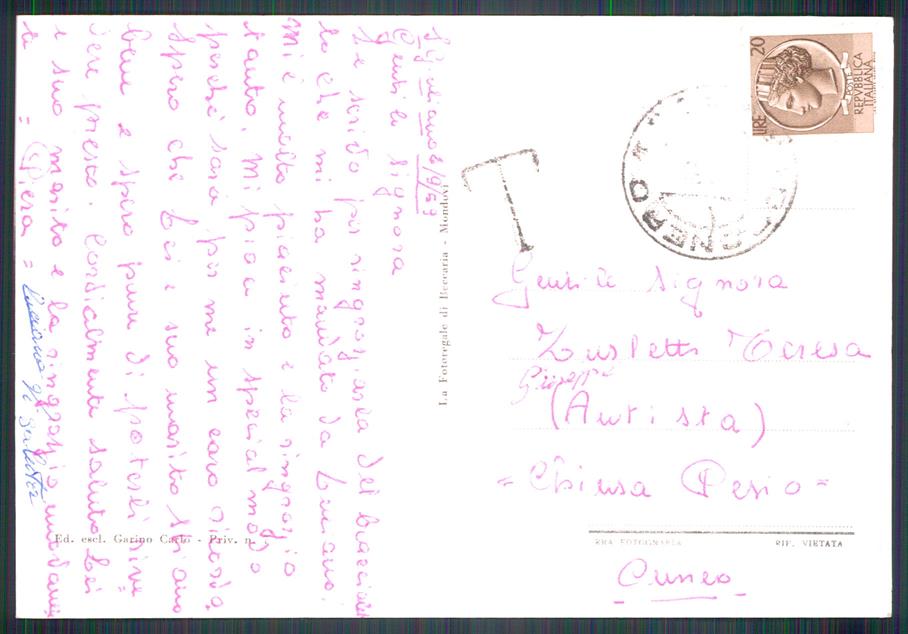 2/9/59
Gentile Signora
Le scrivo per ringraziarla del braccialet
to che mi ha mandato da Luciano,
Mi è molto piaciuto e la ringrazio
tanto. Mi piace in special modo
perché sarà per me un caro ricordo,
Spero che Lei e suo marito stiano
bene e spero pure di poterli rive
dere presto. Cordialmente saluto Lei
e suo marito e la ringrazio
= Piera =
La Fotoregale di Beccaria - Mondovì
Ed. escl. Garino Carlo - Priv. n.
LIRE 20
POSTE
REPVBBLICA
ITALIANA
T
Gentile Signora
Teresa
Giuseppe
(Autista)
= Chiusa Pesio =
VERA FOTOGRAFIA
RIP. VIETATA
- Cuneo -